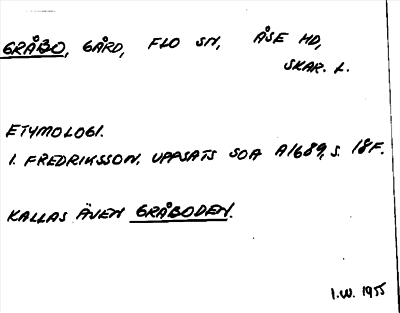 GRÅBO, GÅRD, FLO SN, ÅSE HD,
SKAR. L.
ETYMOLOGI.
I. FREDRIKSSON, UPPSATS SOA A1689, S. 18F.
KALLAS ÄVEN GRÅBODEN.
I.W. 1955